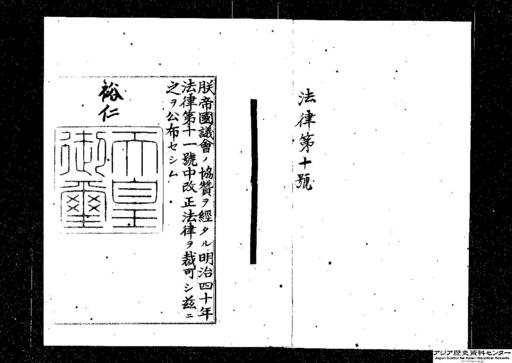 法律第十號
朕帝國議會ノ協贊ヲ經タル明治四十年
法律第十一號中改正法律ヲ裁可シ茲ニ
之ヲ公布セシム
裕仁
天皇
御璽
アジア歴史資料センター
Japan Center for Asian Historical Records